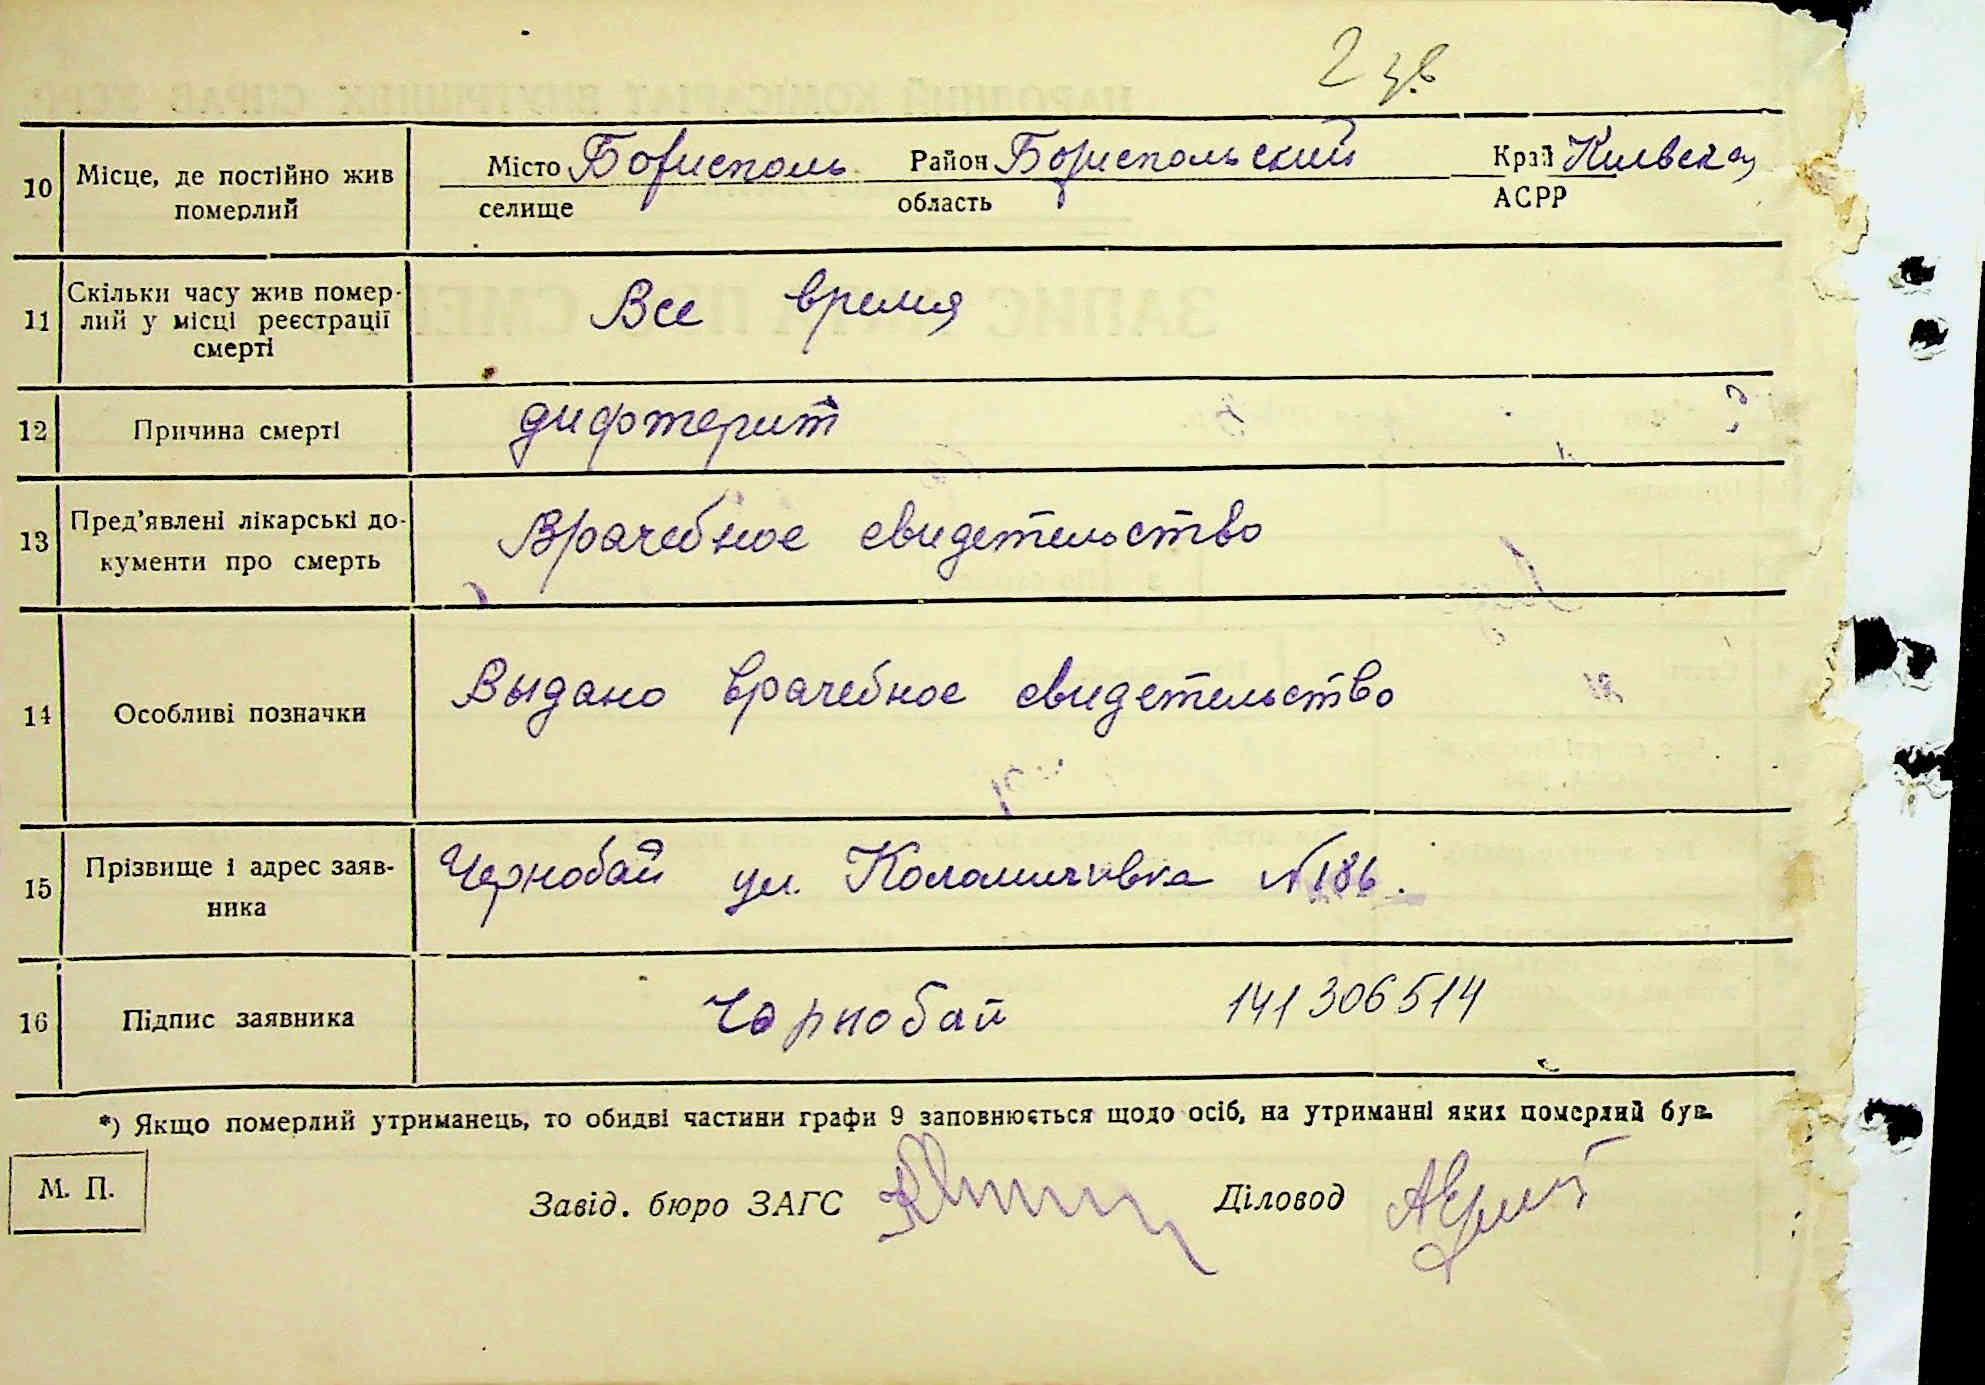 2 зв
10 Місце, де постійно жив померлий Місто селище Борисполь Район область Бориспольский Край АСРР Киевская
11 Скільки часу жив померлий у місці реєстрації смерті Все время
12 Причина смерті дифтерит
13 Пред'явлені лікарські документи про смерть Врачебное свидетельство
14 Особливі позначки Выдано врачебное свидетельство
15 Прізвище і адрес заявника Чернобай ул. Коломиивка №186.
16 Підпис заявника Чорнобай 141306514
*) Якщо померлий утриманець, то обидві частини графи 9 заповнюється щодо осіб, на утриманні яких померлий був.
М. П.
Завід. бюро ЗАГС Діловод